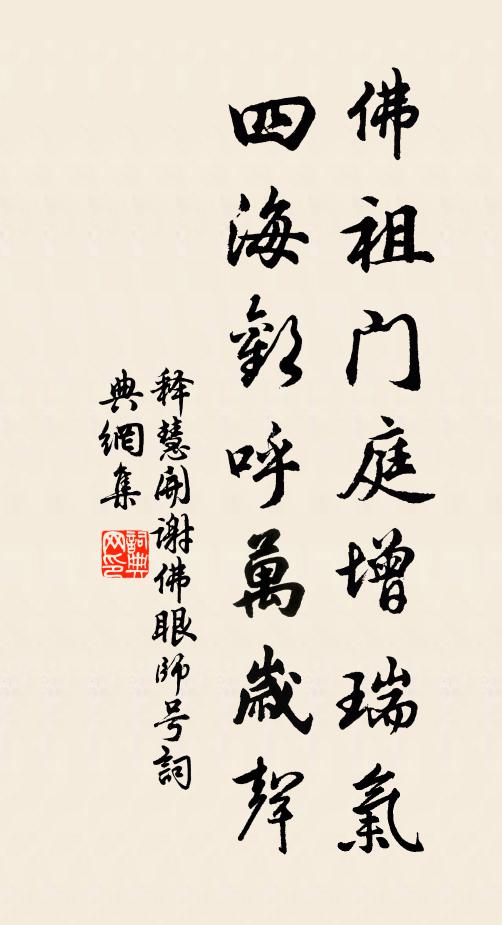 佛祖门庭增瑞氣
四海歡呼萬歲聲
释慧開谢佛眼师号詞
典網集
詞典网印